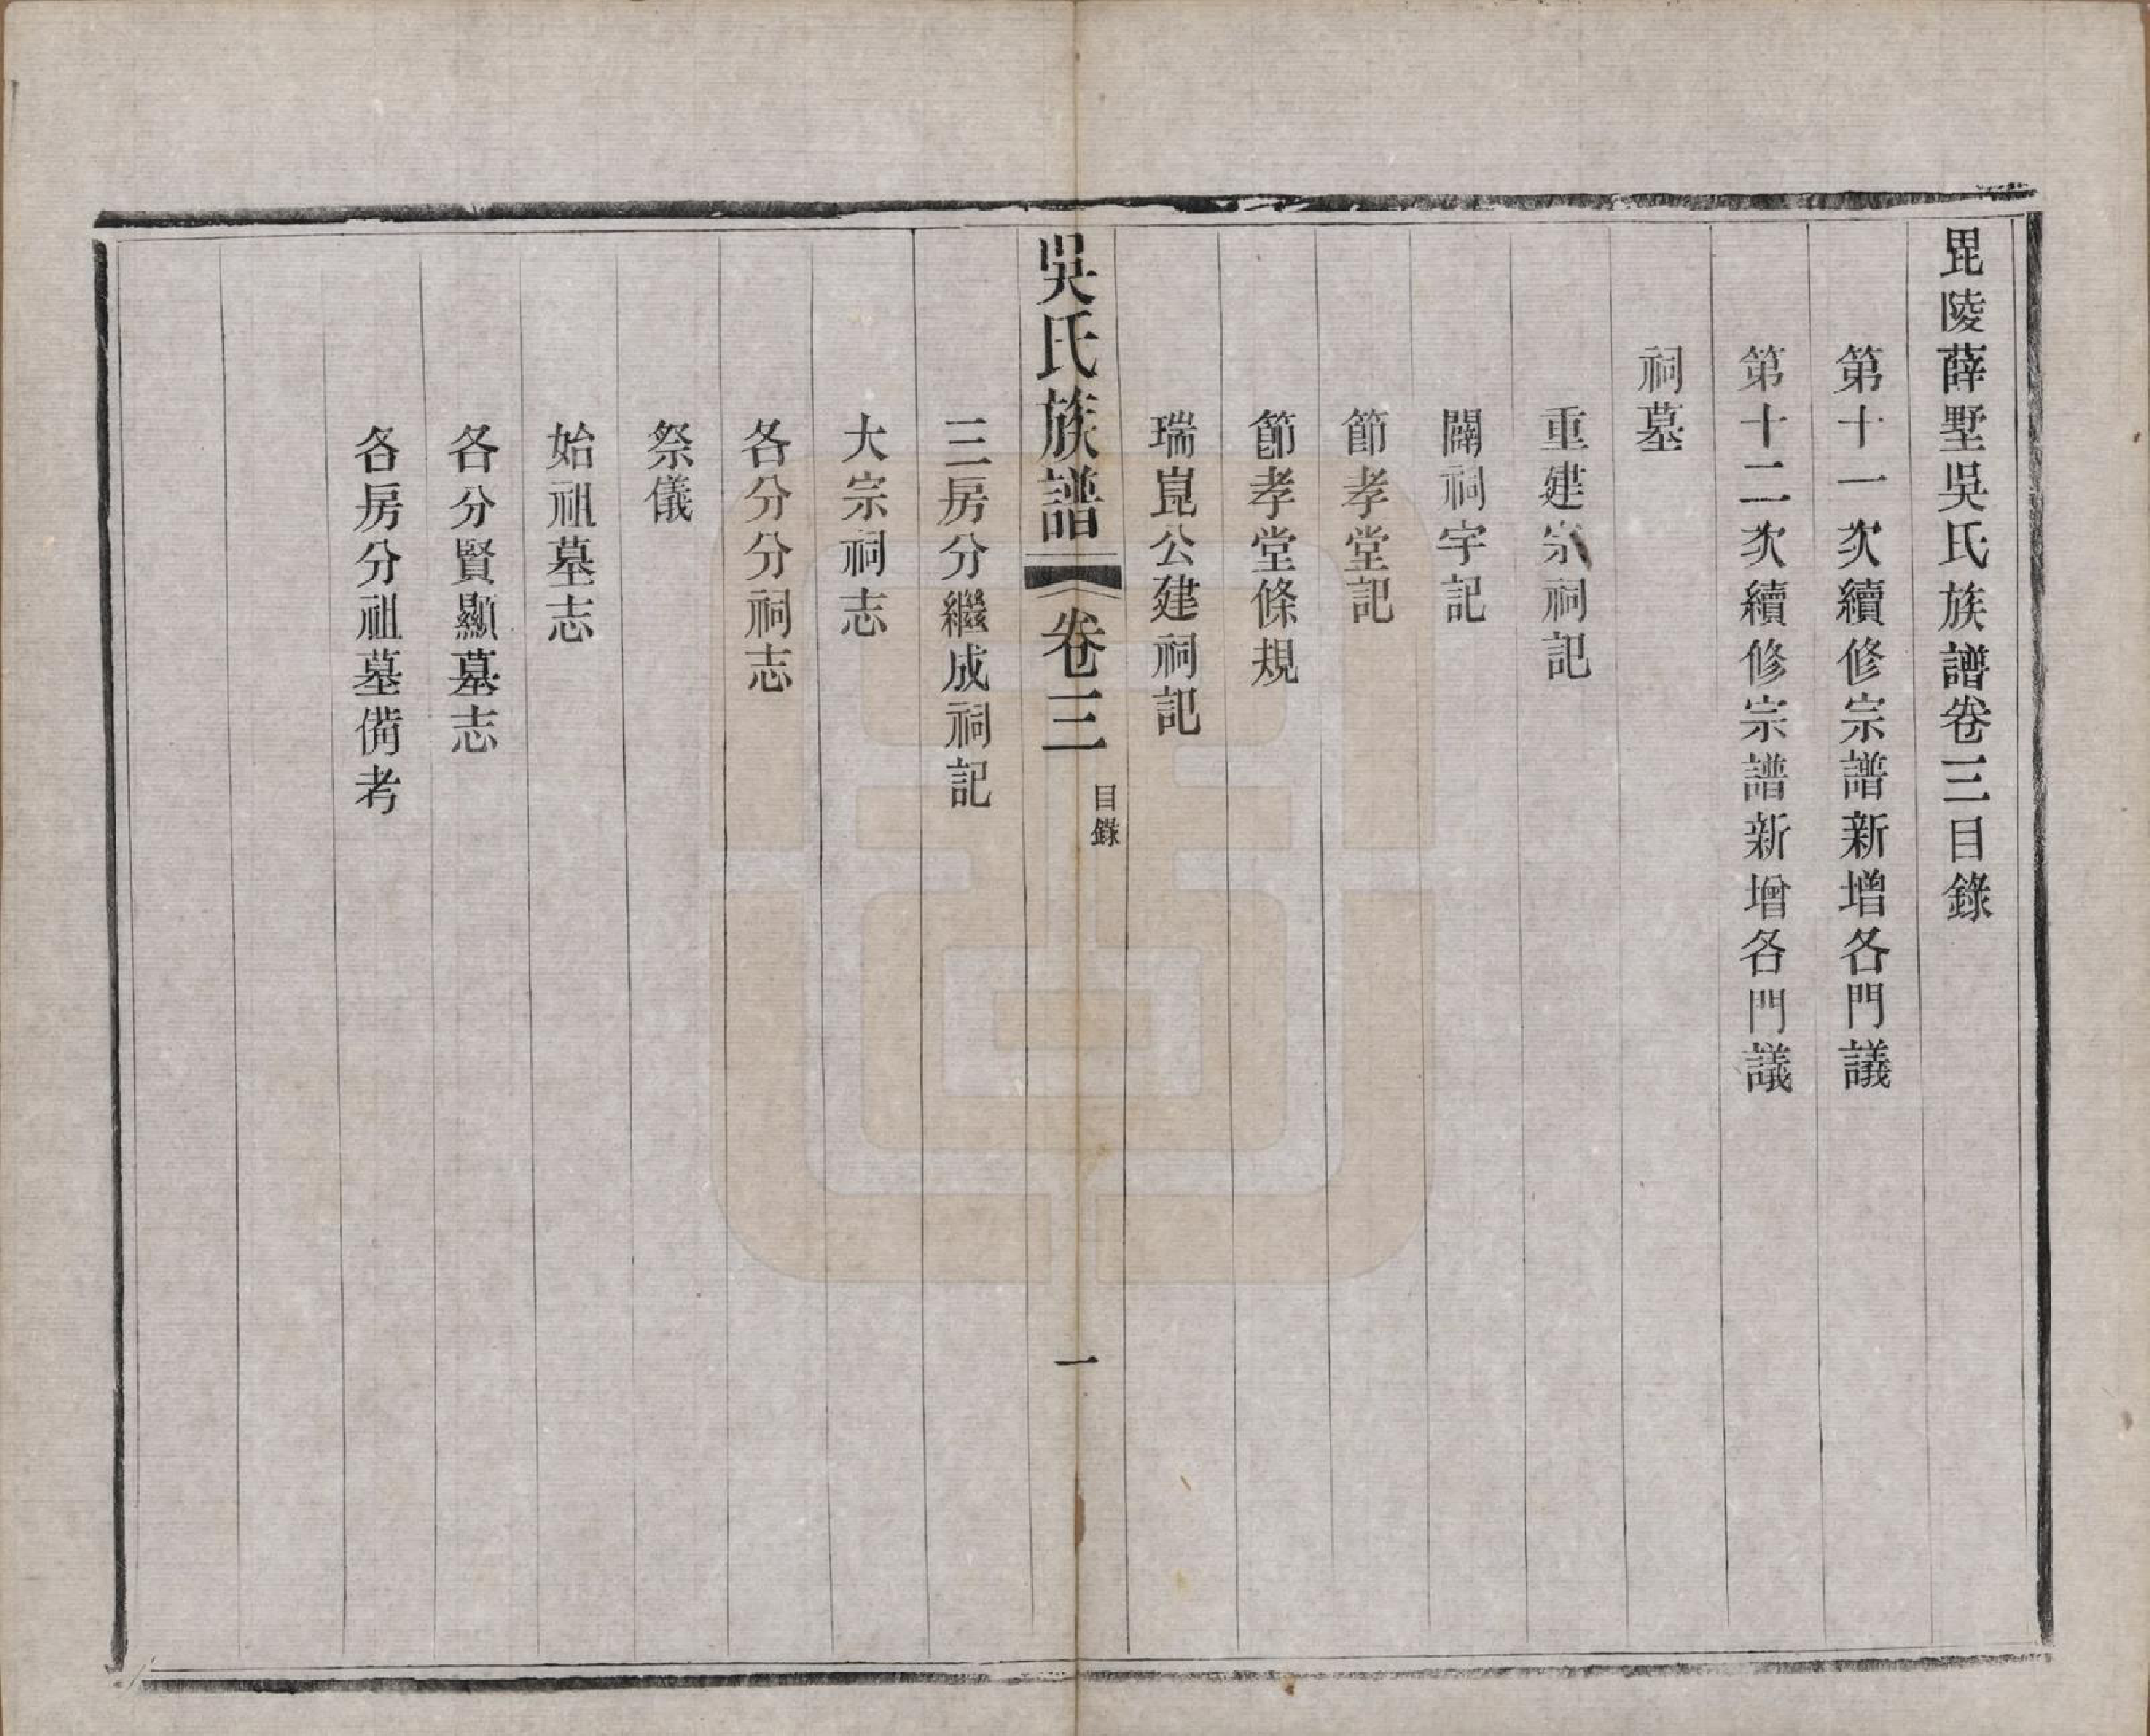 毘陵薛墅吳氏族譜卷三目錄
第十一次續修宗譜新增各門議
第十二次續修宗譜新增各門議
祠墓
重建宗祠記
闢祠宇記
節孝堂記
節孝堂條規
瑞崑公建祠記
吳氏族譜 卷三 目錄 一
三房分繼成祠記
大宗祠志
各分分祠志
祭儀
始祖墓志
各分賢顯墓志
各房分祖墓備考